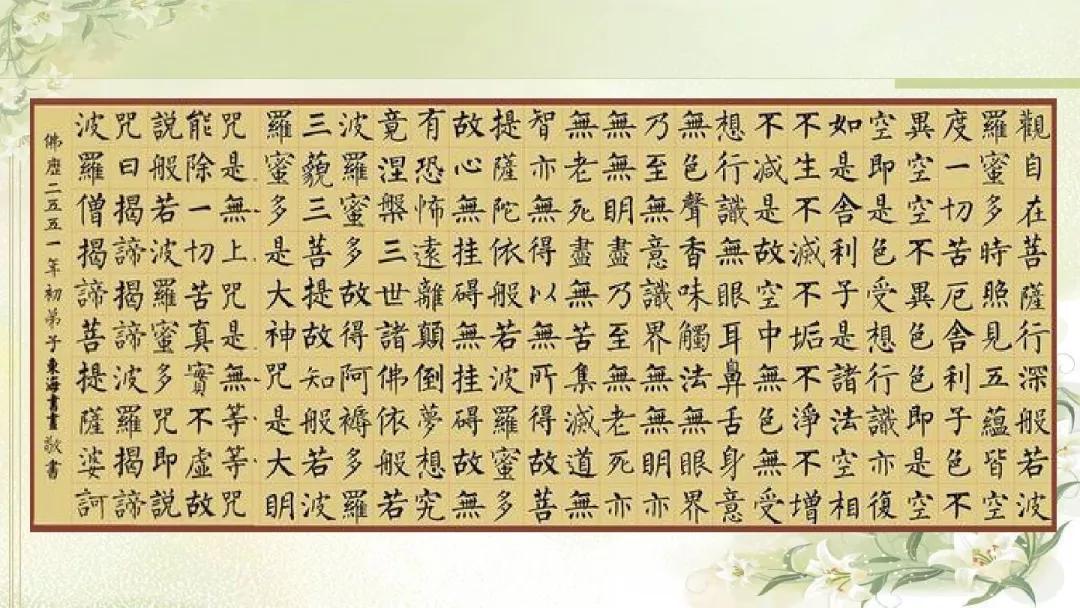 觀自在菩薩行深般若波
羅蜜多時照見五蘊皆空
度一切苦厄舍利子色不
異空空不異色色即是空
空即是色受想行識亦復
如是舍利子是諸法空相
不生不滅不垢不淨不增
不減是故空中無色無受
想行識無眼耳鼻舌身意
無色聲香味觸法無眼界
乃至無意識界無無明亦
無無明盡乃至無老死亦
無老死盡無苦集滅道無
智亦無得以無所得故菩
提薩陀依般若波羅蜜多
故心無挂碍無挂碍故無
有恐怖遠離顛倒夢想究
竟涅槃三世諸佛依般若
波羅蜜多故得阿褥多羅
三藐三菩提故知般若波
羅蜜多是大神咒是大明
咒是無上咒是無等等咒
能除一切苦真實不虛故
説般若波羅蜜多咒即説
咒曰揭諦揭諦波羅揭諦
波羅僧揭諦菩提薩婆訶
佛歷二五五一年初弟子東海書畫敬書